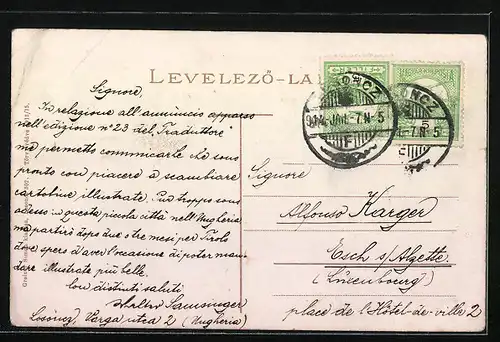 LEVELEZŐ-LA
Signore.
In relazione all'annuncio apparso
nell'edizione nº 23 del "Traduttore"
me permetto communicarle che sono
pronto con piacere a scambiare
cartoline illustrate. Pur troppo sono
adesso in questa piccola città nell'Ungheria
ma partirò dopo due o tre mesi per Tirolo
dove spero d'aver l'occasione di poter man-
dare illustrate più belle.
Con distinti saluti
Walter
Losoncz, Varga utca 2 (Ungheria)
Signore
Alfonso Karger
Esch s/Alzette
(Luxembourg)
place de l'Hôtel-de-ville 2